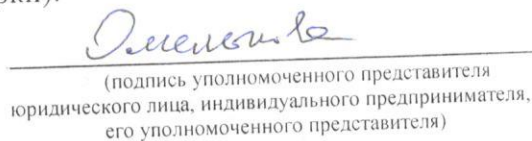 (подпись уполномоченного представителя
юридического лица, индивидуального предпринимателя,
его уполномоченного представителя)